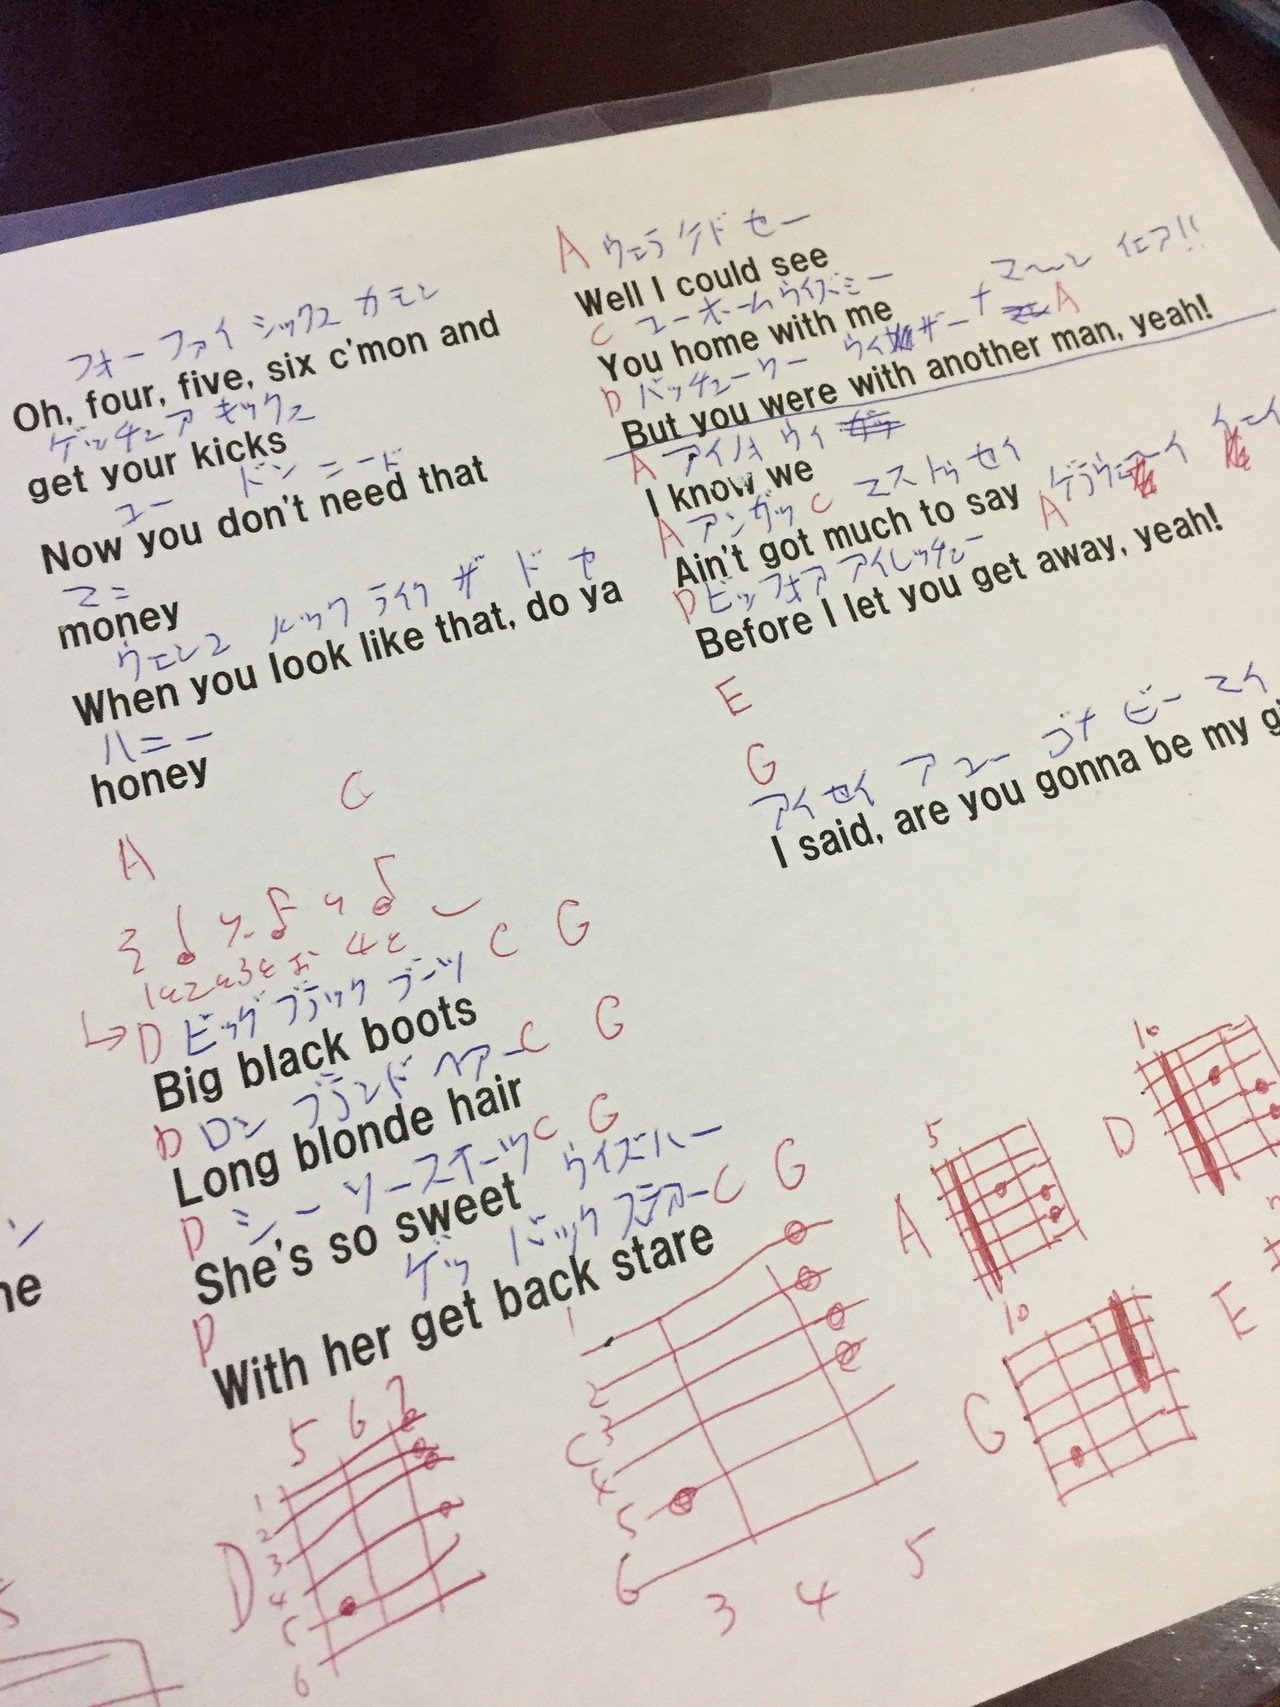 フォー ファイ シックス カモン
Oh, four, five, six c'mon and
ゲッチュア キックス
get your kicks
ユー ドン ニード
Now you don't need that
マニ
money
ウェンユ ルック ライク ザ ド ヤ
When you look like that, do ya
ハニー
honey
C
A
1と2と3と 4と
D ビッグ ブラック ブーツ C G
Big black boots
D ロン ブランド ヘアー C G
Long blonde hair
D シー ソースイーツ C G
She's so sweet
D ウィズハー ゲッ バック ステアー C G
With her get back stare
A ウェラ クド セー
Well I could see
C ユーホームウィズミー
You home with me
D バッチューワー ウィ ザーナ マーン イェア!! A
But you were with another man, yeah!
A アイノ ウィ
I know we
A アンガッ C マス トゥ セイ
Ain't got much to say
D ビッフォア アイレッチュー A ゲラウェーイ イェイ
Before I let you get away, yeah!
E
G
アイ セイ ア ユー ゴナ ビー マイ
I said, are you gonna be my
5 6 7
D
1
2
3
4
5
6
C
1
2
3
4
5
6
3 4 5
A 5
D 10
G 10
E